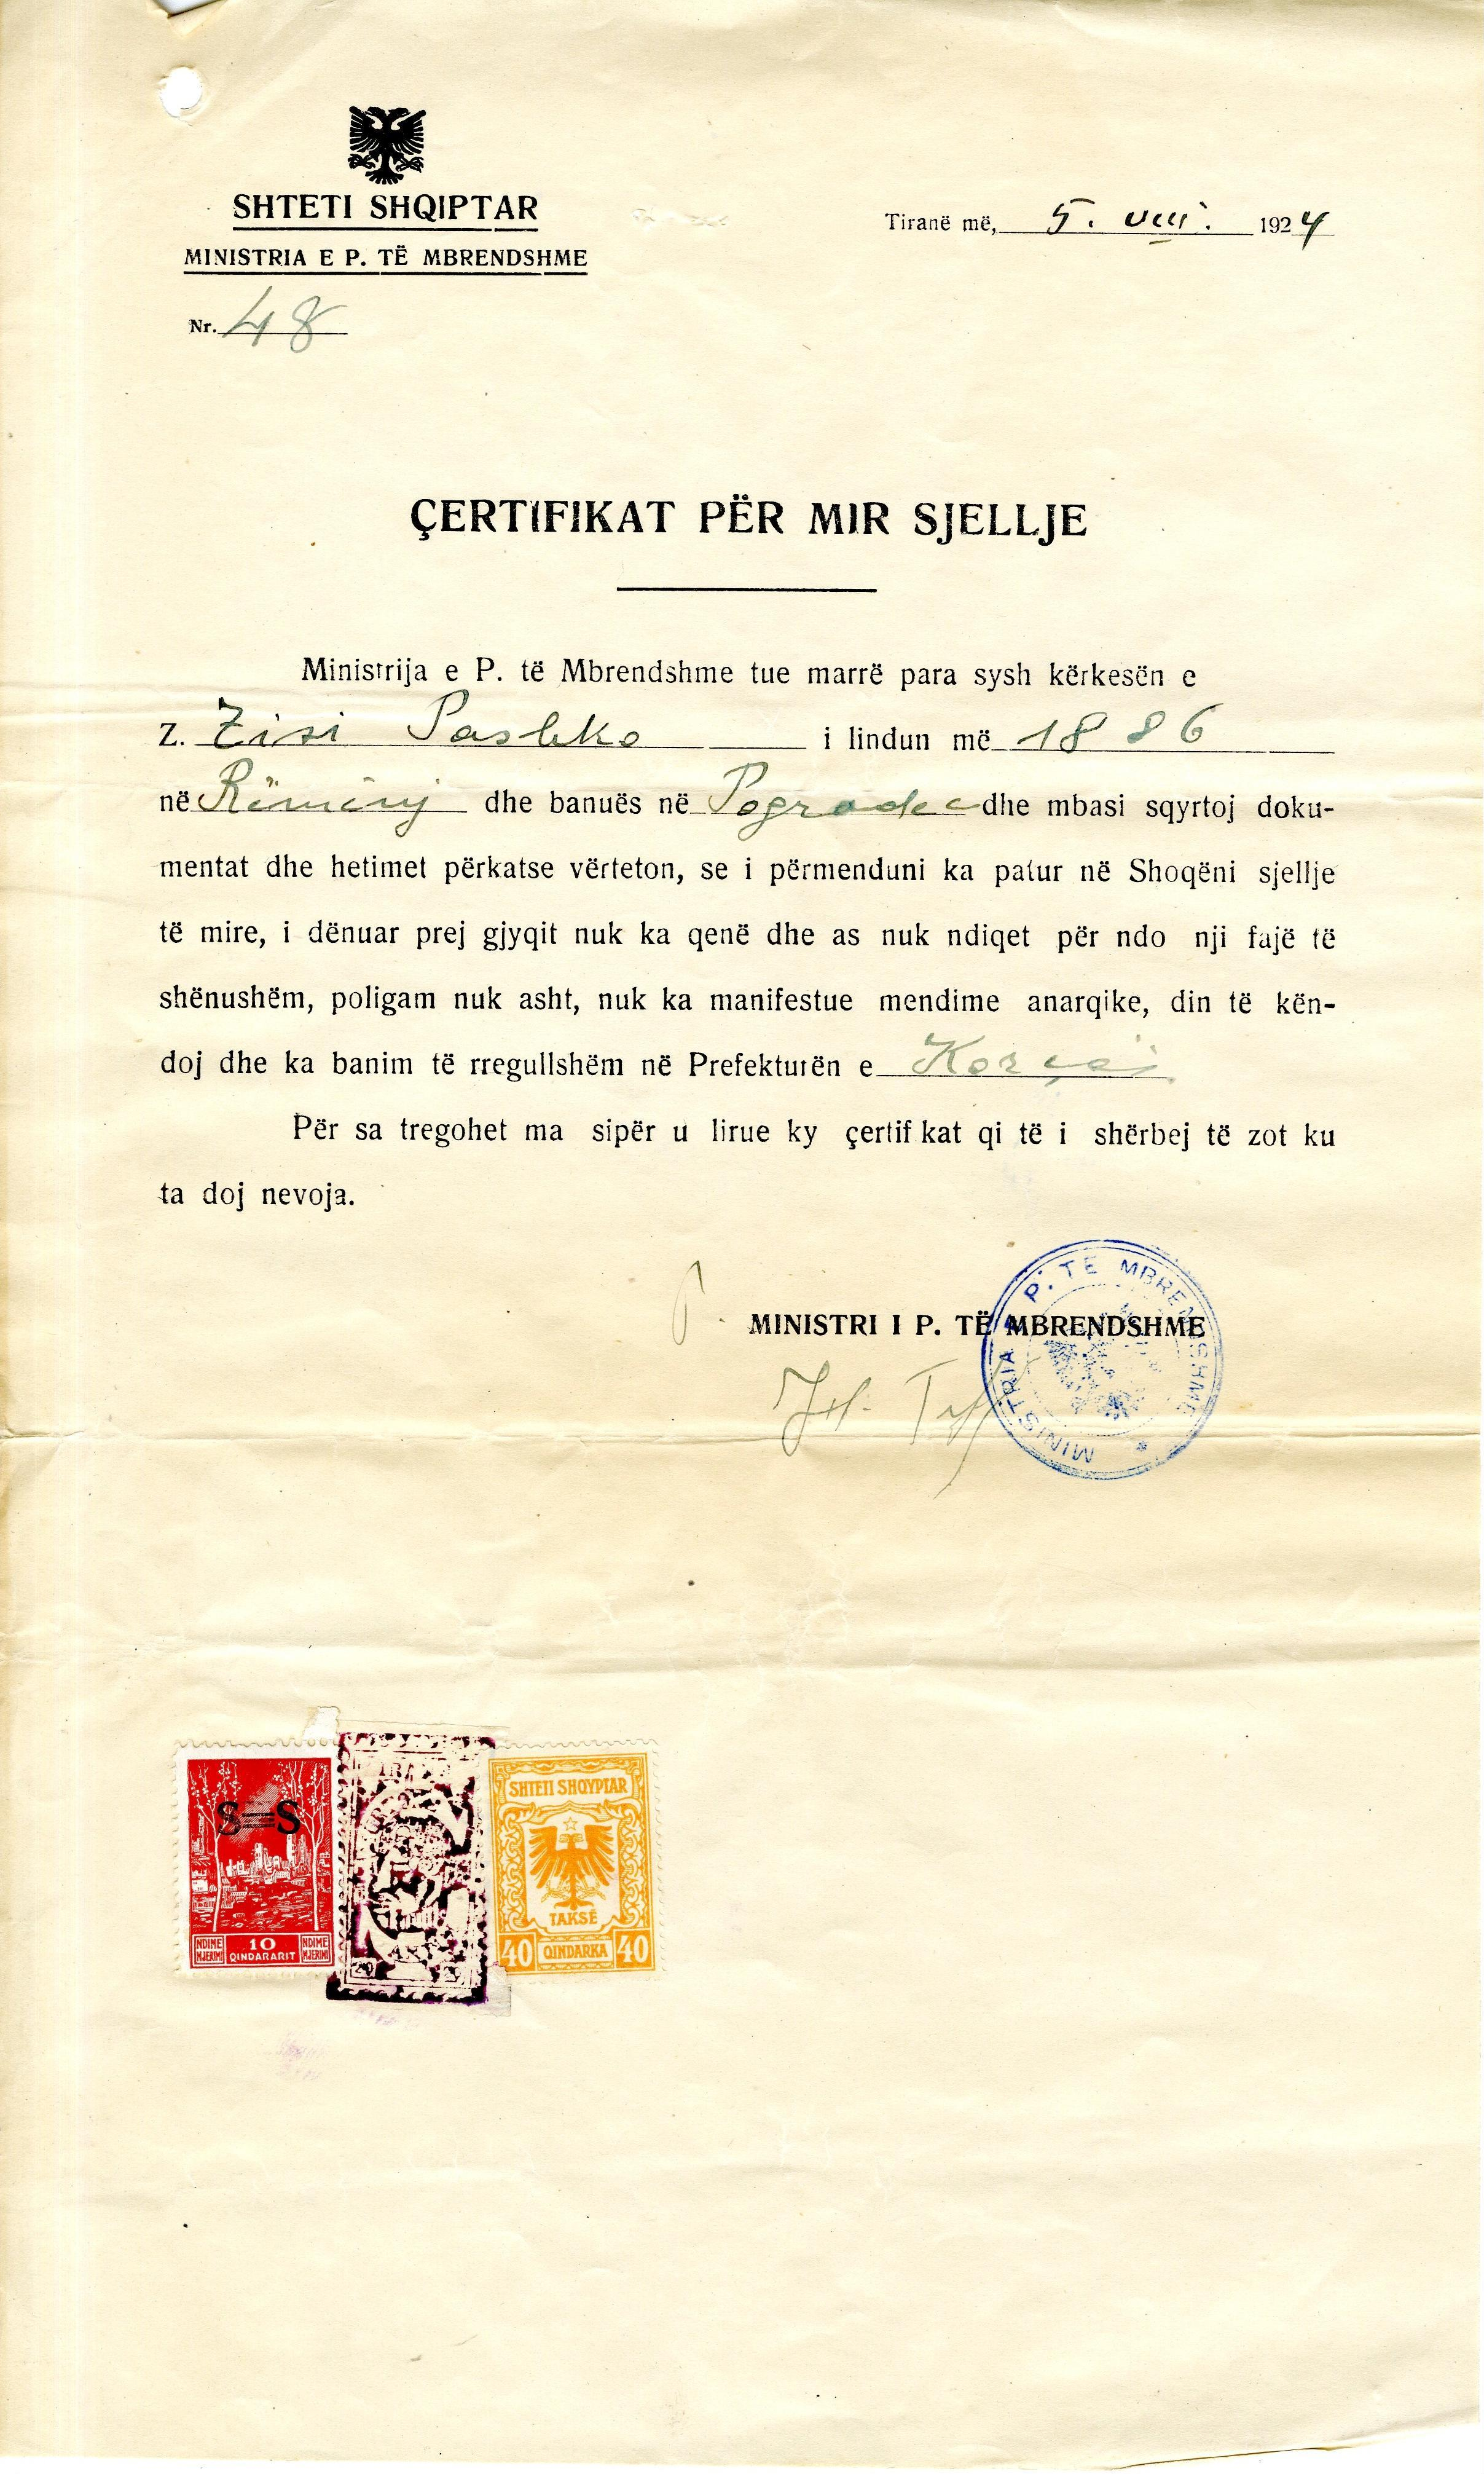 SHTETI SHQIPTAR
MINISTRIA E P. TË MBRENDSHME
Nr. 48
Tiranë më, 5. VIII. 1924
ÇERTIFIKAT PËR MIR SJELLJE
Ministrija e P. të Mbrendshme tue marrë para sysh kërkesën e
Z. Zisi Pashko i lindun më 1886
në Rëminj dhe banuës në Pogradec dhe mbasi sqyrtoj doku-
mentat dhe hetimet përkatse vërteton, se i përmenduni ka patur në Shoqëni sjellje
të mire, i dënuar prej gjyqit nuk ka qenë dhe as nuk ndiqet për ndo nji fajë të
shënushëm, poligam nuk asht, nuk ka manifestue mendime anarqike, din të kën-
doj dhe ka banim të rregullshëm në Prefekturën e Korçës
Për sa tregohet ma sipër u lirue ky çertif kat qi të i shërbej të zot ku
ta doj nevoja.
P. MINISTRI I P. TË MBRENDSHME
MINISTRIA P. TË MBRENDSHME
S=S
10
QINDARARIT
NDIME
NJERIMI
NDIME
NJERIMI
SHTETI SHQYPTAR
TAKSË
40 QINDARKA 40